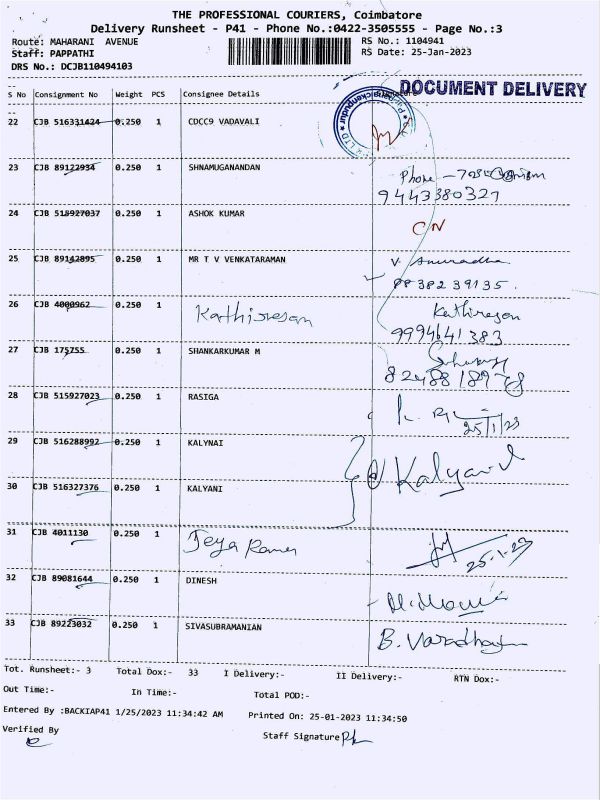 THE PROFESSIONAL COURIERS, Coimbatore
Delivery Runsheet - P41 - Phone No.:0422-3505555 - Page No.:3
Route: MAHARANI AVENUE RS No.: 1104941
Staff: PAPPATHI RS Date: 25-Jan-2023
DRS No.: DCJB110494103
DOCUMENT DELIVERY
S No Consignment No Weight PCS Consignee Details Signature
22 CJB 516331424 0.250 1 CDCC9 VADAVALI
23 CJB 89122934 0.250 1 SHNAMUGANANDAN Phone
9443380321
24 CJB 515927037 0.250 1 ASHOK KUMAR CN
25 CJB 89142895 0.250 1 MR T V VENKATARAMAN V. Anuradha
8838239135.
26 CJB 4000962 0.250 1 Kathiresan Kathiresan
9994641383
27 CJB 175755 0.250 1 SHANKARKUMAR M
28 CJB 515927023 0.250 1 RASIGA
25/1/23
29 CJB 516288992 0.250 1 KALYNAI Kalyani
30 CJB 516327376 0.250 1 KALYANI
31 CJB 4011130 0.250 1 Jeya Raman 25-1-23
32 CJB 89081644 0.250 1 DINESH
33 CJB 89223032 0.250 1 SIVASUBRAMANIAN B.
Tot. Runsheet:- 3 Total Dox:- 33 I Delivery:- II Delivery:- RTN Dox:-
Out Time:- In Time:- Total POD:-
Entered By :BACKIAP41 1/25/2023 11:34:42 AM Printed On: 25-01-2023 11:34:50
Verified By Staff Signature